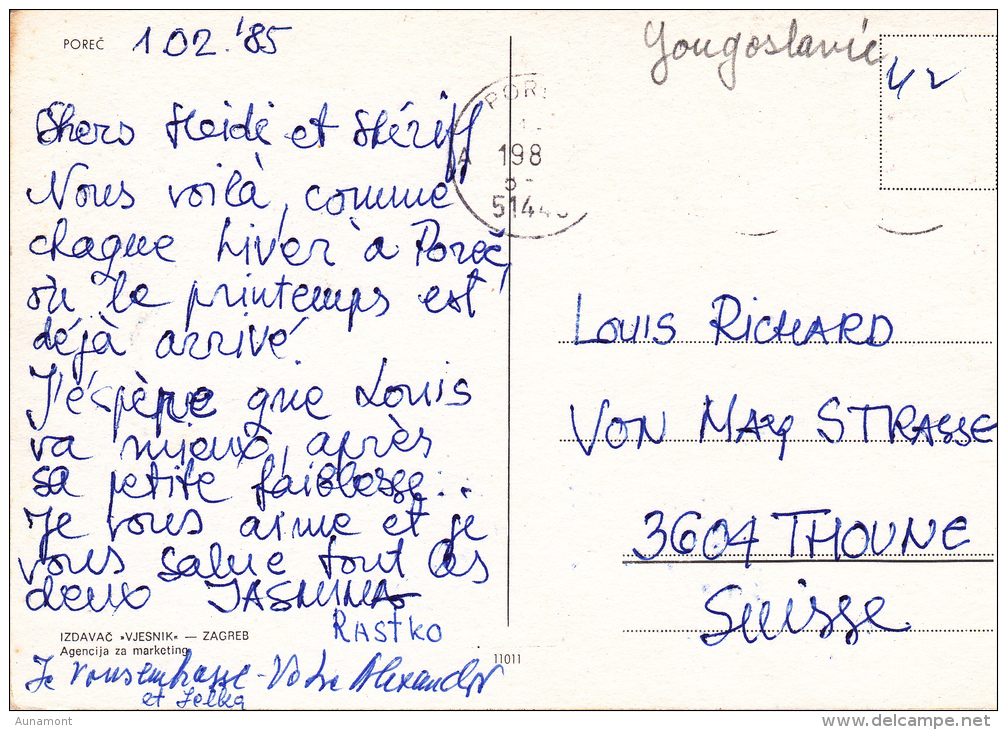 POREČ 1 02. '85
Yougoslavie
42
Chers Heidi et Shériff
Nous voilà, comme
chaque hiver à Poreč,
où le printemps est
déjà arrivé.
J'espère que Louis
va mieux, après
sa petite faiblesse...
Je vous aime et je
vous salue tout les
deux JASMINA
RASTKO
Je vous embrasse - Votre Alexandar
et Jelka
IZDAVAČ »VJESNIK« — ZAGREB
Agencija za marketing
11011
POR
198
51440
LOUIS RICHARD
VON MAY STRASSE
3604 THOUNE
Suisse
Aunamont
www.delcampe.net